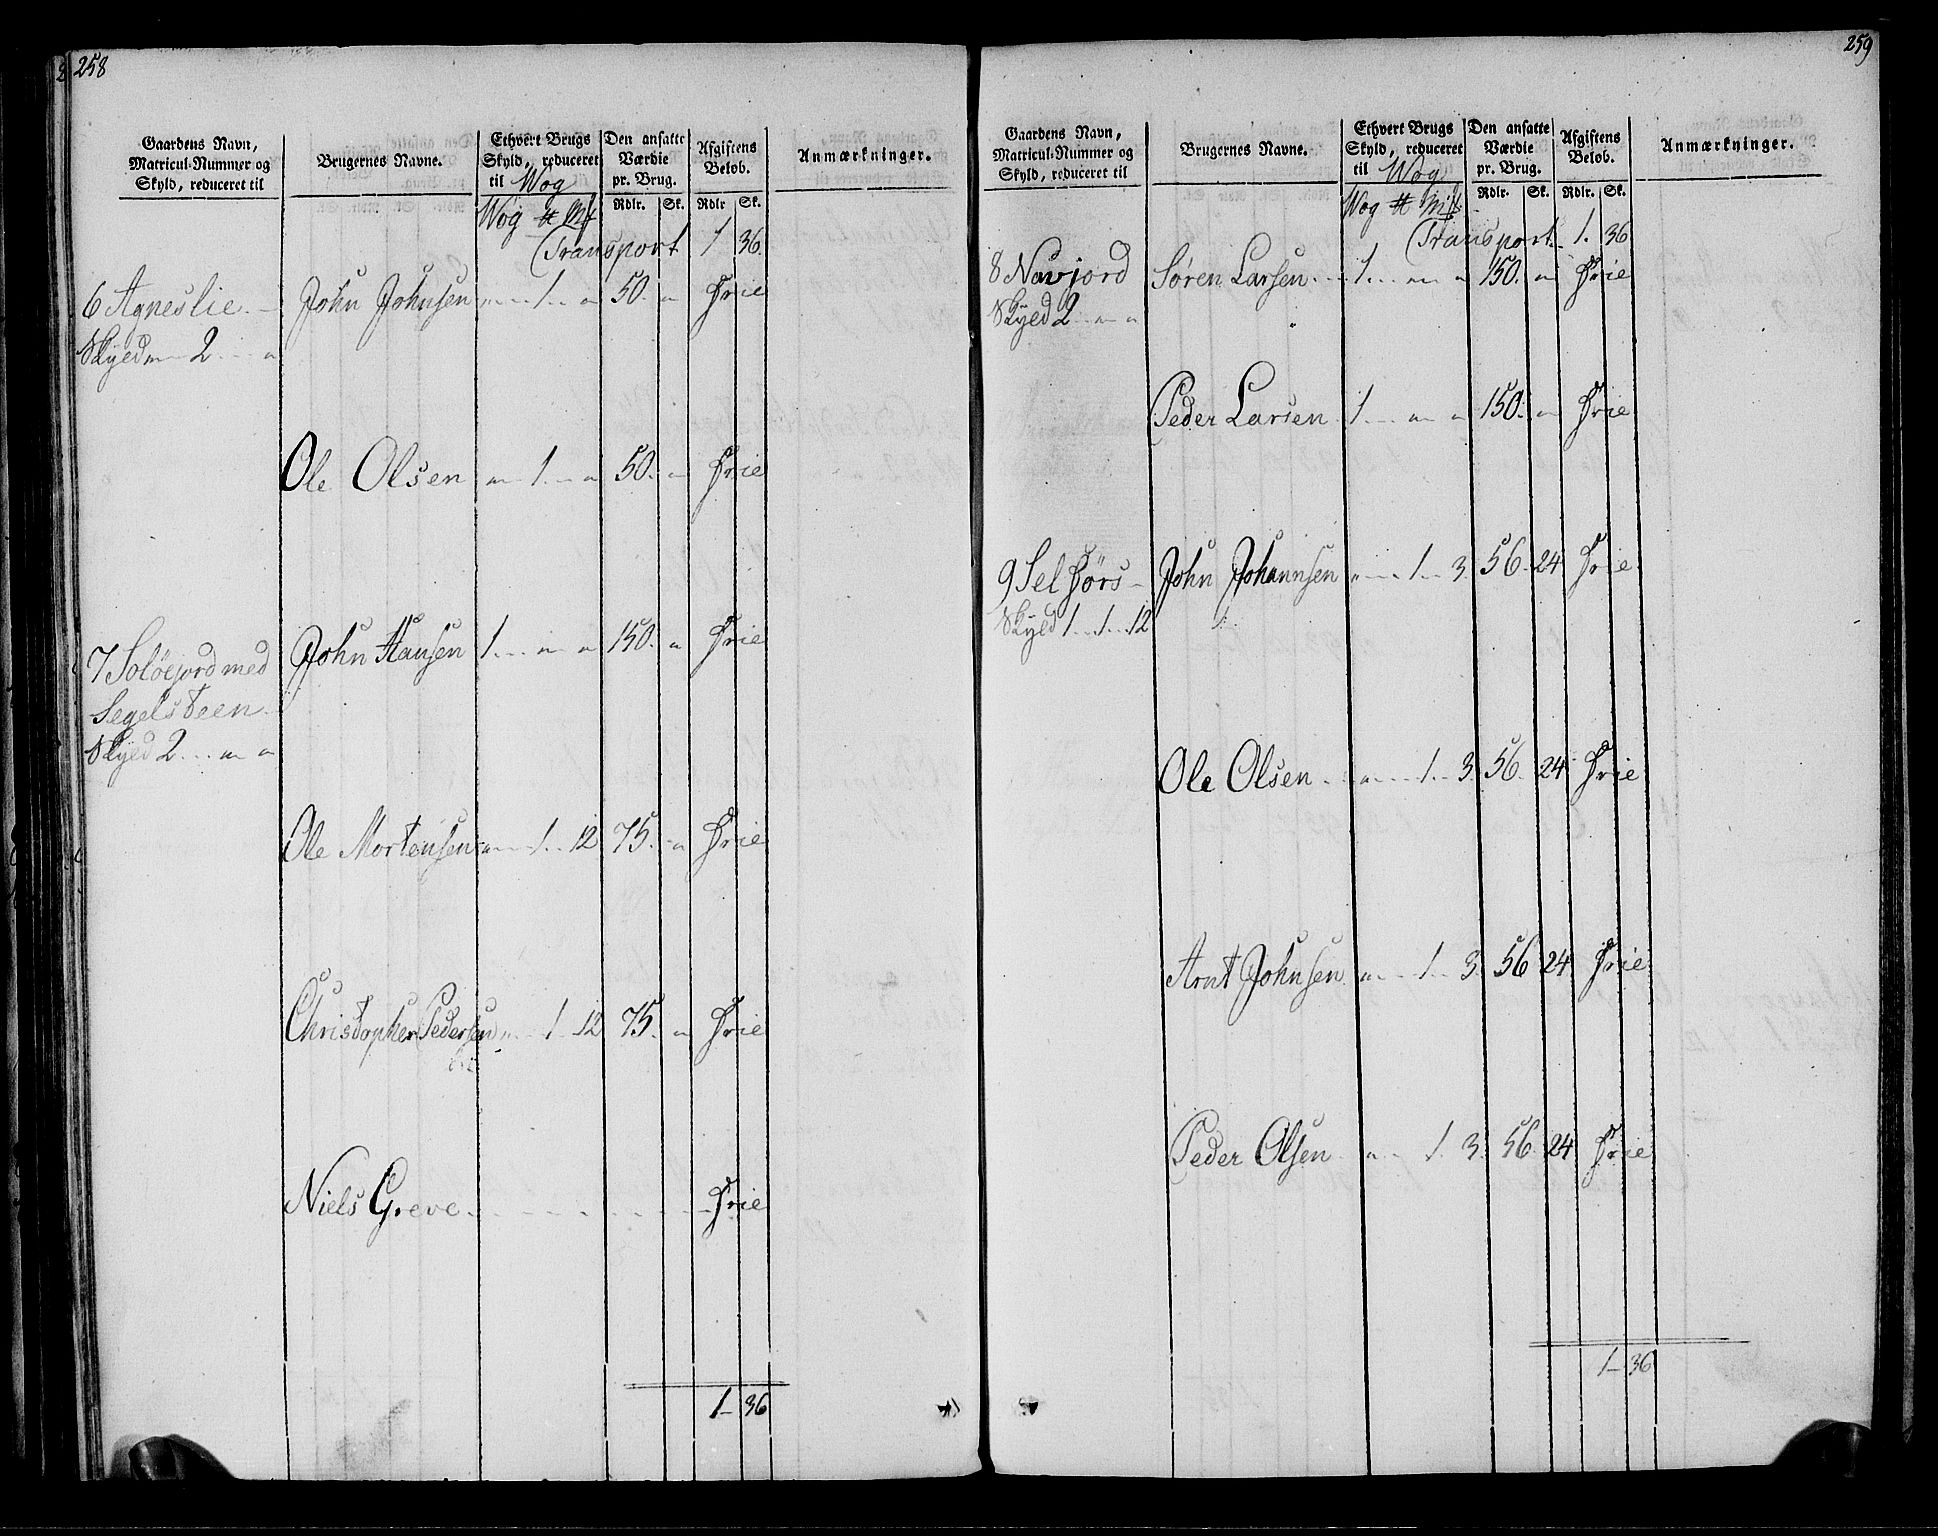 258
Gaardens Navn, Matricul-Nummer og Skyld, reduceret til
Brugernes Navne.
Ethvert Brugs Skyld, reduceret til Wog
Den ansatte Værdie pr. Brug.
Afgiftens Beløb.
Anmærkninger.
Wog # Mk
Rdlr. Sk. Rdlr Sk.
Transport 1 36.
6 Agneslie. John Johnsen " 1 " 50. " Frie
Skyld " 2 "
Ole Olsen " 1 " 50. " Frie
7 Soløejord med John Hansen 1 " " 150. " Frie
Segelsteen
Skyld 2 " "
Ole Mortensen " 1 12 75. " Frie
Christopher Pedersen " 1 12 75. " Frie
Niels Greve Frie
1 - 36
259
Gaardens Navn, Matricul-Nummer og Skyld, reduceret til
Brugernes Navne.
Ethvert Brugs Skyld, reduceret til Wog
Den ansatte Værdie pr. Brug.
Afgiftens Beløb.
Anmærkninger.
Wog # Mk
Rdlr. Sk. Rdlr. Sk.
Transport 1. 36
8 Navjord Søren Larsen 1 " " 150. " Frie
Skyld 2 " "
Peder Larsen 1 " " 150. " Frie
9 Selfórs John Johannsen " 1 3 56 24 Frie
Skyld 1 1 12
Ole Olsen " 1 3 56 24 Frie
Arnt Johnsen " 1 3 56 24 Frie
Peder Olsen " 1 3 56 24 Frie
1 - 36